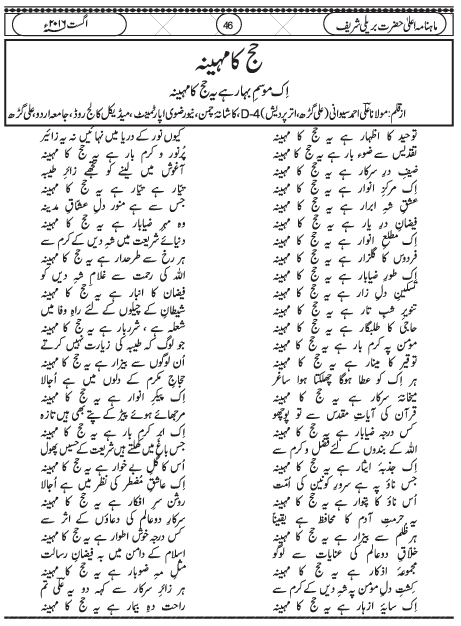 ماہنامہ اعلیٰ حضرت بریلی شریف
46
اگست ۲۰۱۶ء
حج کا مہینہ
اِک موسمِ بہار ہے یہ حج کا مہینہ
از قلم: مولانا علی احمد سیوانی (علی گڑھ، اتر پردیش) D-4، کاشانۂ چمن، نیو رضوی اپارٹمینٹ، میڈیکل کالج روڈ، جامعہ اردو، علی گڑھ
توحید کا اظہار ہے یہ حج کا مہینہ
تقدیس سے ضوء بار ہے یہ حج کا مہینہ
ضیفِ درِ سرکار ہے یہ حج کا مہینہ
اِک مرکزِ انوار ہے یہ حج کا مہینہ
عشقِ شہِ ابرار ہے یہ حج کا مہینہ
فیضانِ درِ یار ہے یہ حج کا مہینہ
اِک مطلعِ انوار ہے یہ حج کا مہینہ
فردوس کا گلزار ہے یہ حج کا مہینہ
اِک طورِ ضیابار ہے یہ حج کا مہینہ
تسکینِ دلِ زار ہے یہ حج کا مہینہ
تنویرِ شبِ تار ہے یہ حج کا مہینہ
حاجی کا طلبگار ہے یہ حج کا مہینہ
مومن پہ کرم بار ہے یہ حج کا مہینہ
توقیر کا مینار ہے یہ حج کا مہینہ
ہر اِک کو عطا ہوگا چھلکتا ہوا ساغر
میخانۂ سرکار ہے یہ حج کا مہینہ
قرآن کی آیاتِ مقدس سے تو پوچھو
کس درجہ ضیابار ہے یہ حج کا مہینہ
اللہ کے بندوں کے لئے فضل و کرم سے
اِک جذبۂ ایثار ہے یہ حج کا مہینہ
جس ناؤ پہ ہے سرورِ کونین کی اُمّت
اُس ناؤ کا پتوار ہے یہ حج کا مہینہ
یہ حرمتِ آدم کا محافظ ہے یقیناً
ہر ظلم سے بیزار ہے یہ حج کا مہینہ
خلاقِ دو عالم کی عنایات سے لوگو
مجموعۂ اذکار ہے یہ حج کا مہینہ
کِشتِ دلِ مومن پہ شہِ دیں کے کرم سے
اِک سایۂ ازہار ہے یہ حج کا مہینہ
کیوں نور کے دریا میں نہائیں نہ یہ زائر
پُر نور و کرم بار ہے یہ حج کا مہینہ
آغوش میں لینے کو تجھے زائرِ طیبہ
تیّار ہے تیّار ہے یہ حج کا مہینہ
جس سے ہے منور دلِ عشاقِ مدینہ
وہ مہرِ ضیابار ہے یہ حج کا مہینہ
دنیائے شریعت میں شہِ دیں کے کرم سے
ہر رخ سے طرحدار ہے یہ حج کا مہینہ
اللہ کی رحمت سے غلامِ شہِ دیں کو
فیضان کا انبار ہے یہ حج کا مہینہ
شیطان کے چیلوں کے لئے راہِ وفا میں
شعلہ ہے، شرر بار ہے یہ حج کا مہینہ
جو لوگ کہ طیبہ کی زیارت نہیں کرتے
اُن لوگوں سے بیزار ہے یہ حج کا مہینہ
حجاجِ مکرم کے دلوں میں ہے اُجالا
اِک پیکرِ انوار ہے یہ حج کا مہینہ
مرجھائے ہوئے پیڑ کے پتے بھی ہیں تازہ
اِک ابرِ کرم بار ہے یہ حج کا مہینہ
جس باغ میں کھلتے ہیں شریعت کے حسیں پھول
اُس کا گلِ بے خوار ہے یہ حج کا مہینہ
اِک عاشقِ مضطر کی نظر میں ہے اُجالا
روشن سرِ افکار ہے یہ حج کا مہینہ
سرکارِ دوعالم کی دعاؤں کے اثر سے
کس درجہ خوش اطوار ہے یہ حج کا مہینہ
اسلام کے دامن میں بہ فیضانِ رسالت
مثلِ مہِ ضوبار ہے یہ حج کا مہینہ
ہر زائرِ سرکار سے کہہ دو یہ علی تم
راحت دہِ بیمار ہے یہ حج کا مہینہ